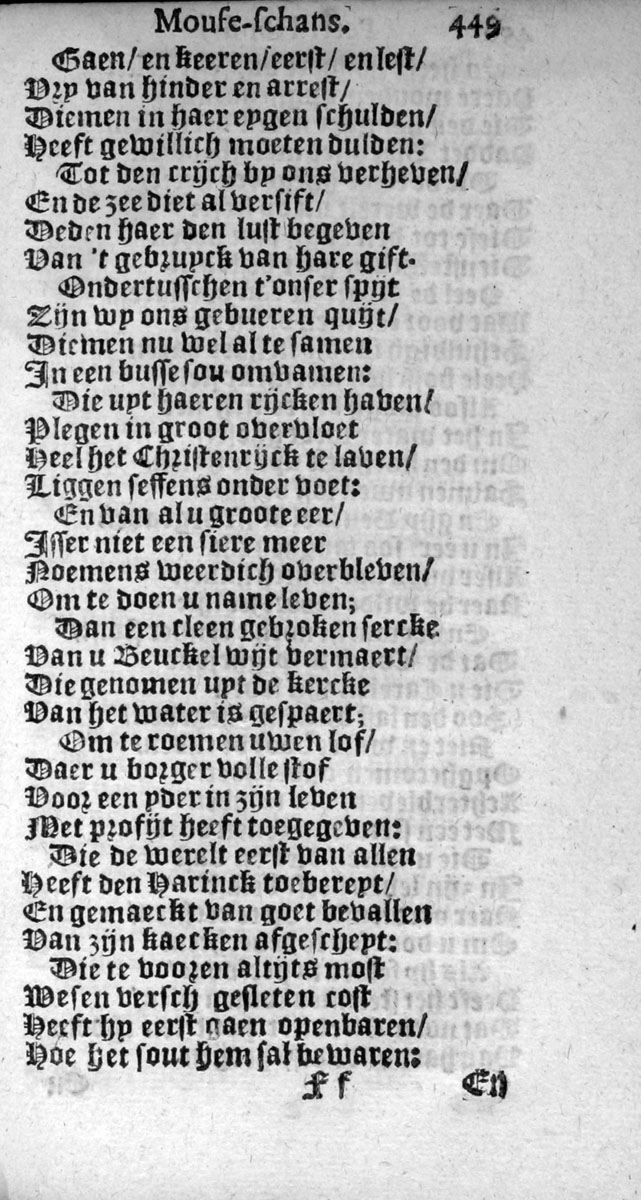 Mouse-schans. 449
Gaen/ en keeren/ eerst/ en lest/
Vry van hinder en arrest/
Diemen in haer eygen schulden/
Heeft gewillich moeten dulden:
Tot den crijch by ons verheven/
En de zee diet al versift/
Deden haer den lust begeven
Van 't gebruyck van hare gift.
Ondertusschen t'onser spijt
Zijn wy ons gebueren quijt/
Diemen nu wel al te samen
In een busse sou omvamen:
Die uyt haeren rijcken haven/
Plegen in groot overvloet
Heel het Christenrijck te laven/
Liggen seffens onder voet:
En van al u groote eer/
Isser niet een siere meer
Noemens weerdich overbleven/
Om te doen u name leven;
Dan een cleen gebroken sercke
Van u Beuckel wijt vermaert/
Die genomen uyt de kercke
Van het water is gespaert;
Om te roemen uwen lof/
Daer u borger volle stof
Voor een yder in zijn leven
Met profijt heeft toegegeven:
Die de werelt eerst van allen
Heeft den Harinck toebereyt/
En gemaeckt van goet bevallen
Van zijn kaecken afgescheyt:
Die te vooren altijts most
Wesen versch gesleten cost
Heeft hy eerst gaen openbaren/
Hoe het sout hem sal bewaren:
F f En